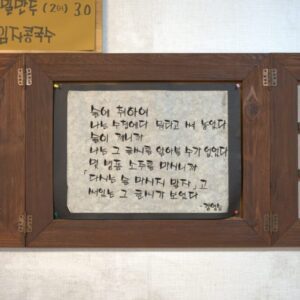 밀만두 (2개) 3.0
임자콩국수
술에 취하여
나는 수첩에다 뭐라고 써 놓았다
술이 깨니까
나는 그 글씨를 알아볼 수가 없었다
몇 병쯤 소주를 마시니까
「다시는 술 마시지 말자」고
써있는 그 글씨가 보였다